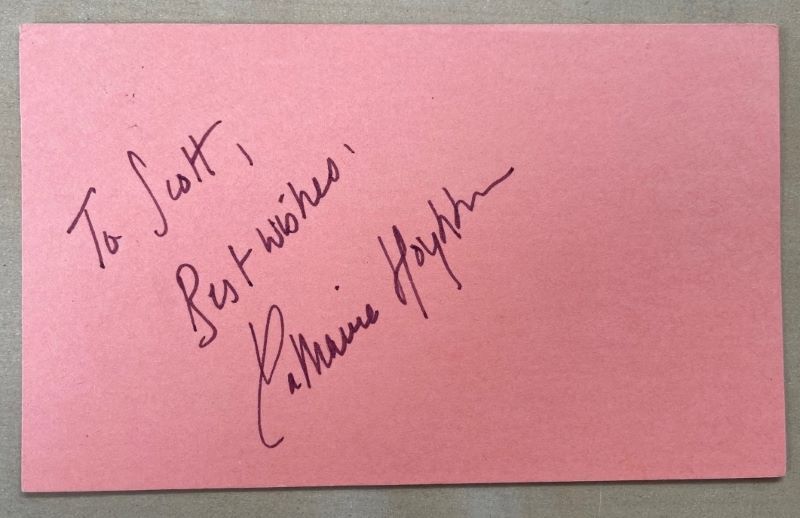 To Scott,
Best wishes,
Katharine Houghton